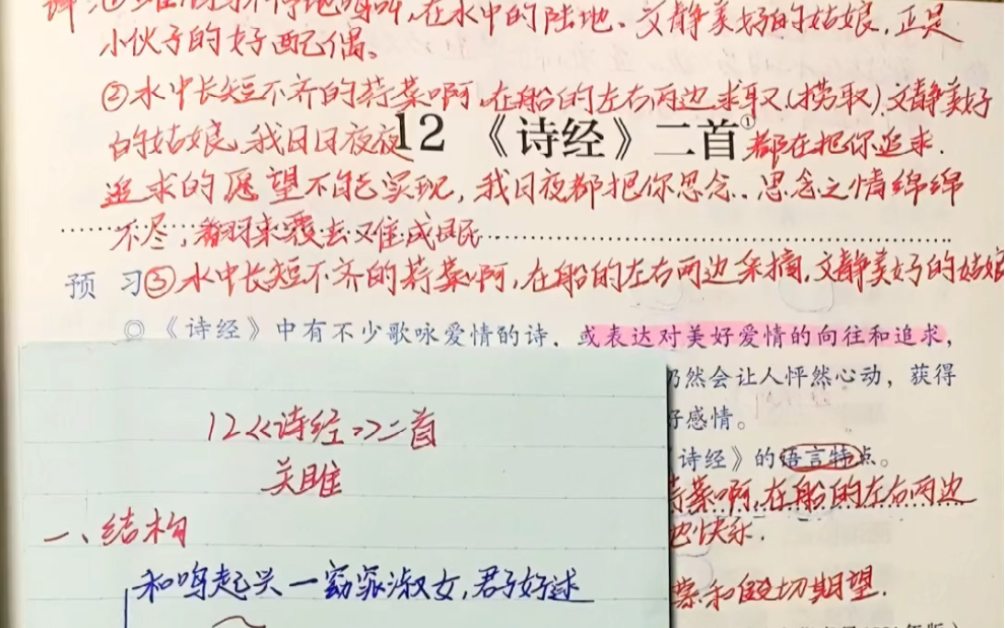 在水中的陆地。文静美好的姑娘,正是
小伙子的好配偶。
②水中长短不齐的荇菜啊,在船的左右两边求取(捞取).文静美好
的姑娘,我日日夜夜都在把你追求.
12 《诗经》二首①
追求的愿望不能实现,我日夜都把你思念..思念之情绵绵
不尽,翻来覆去又难成眠
预 习
③水中长短不齐的荇菜啊,在船的左右两边采摘,文静美好的姑娘
◎《诗经》中有不少歌咏爱情的诗,或表达对美好爱情的向往和追求,
仍然会让人怦然心动,获得
好感情。
诗经》的语言特点。
荇菜啊,在船的左右两边
也快乐.
切期望.
12《诗经》二首
关雎
一、结构
和鸣起兴—窈窕淑女,君子好逑